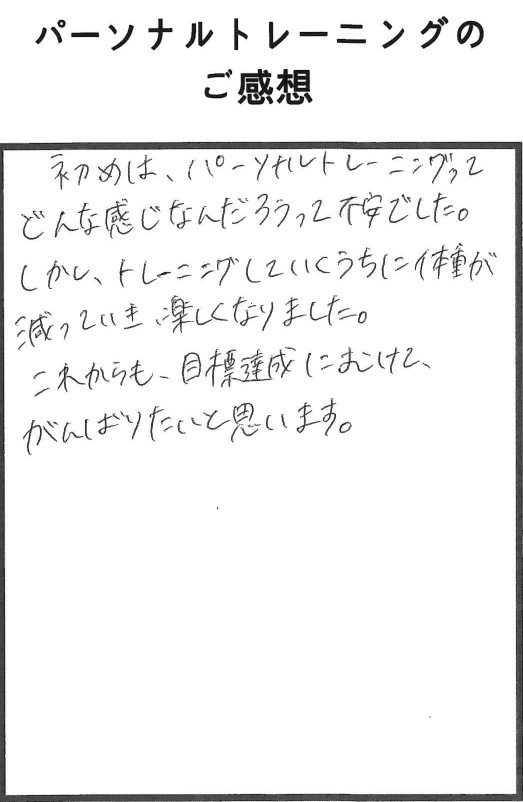 パーソナルトレーニングの
ご感想
初めは、パーソナルトレーニングって
どんな感じなんだろうって不安でした。
しかし、トレーニングしていくうちに体重が
減っていき、楽しくなりました。
これからも、目標達成にむけて、
がんばりたいと思います。